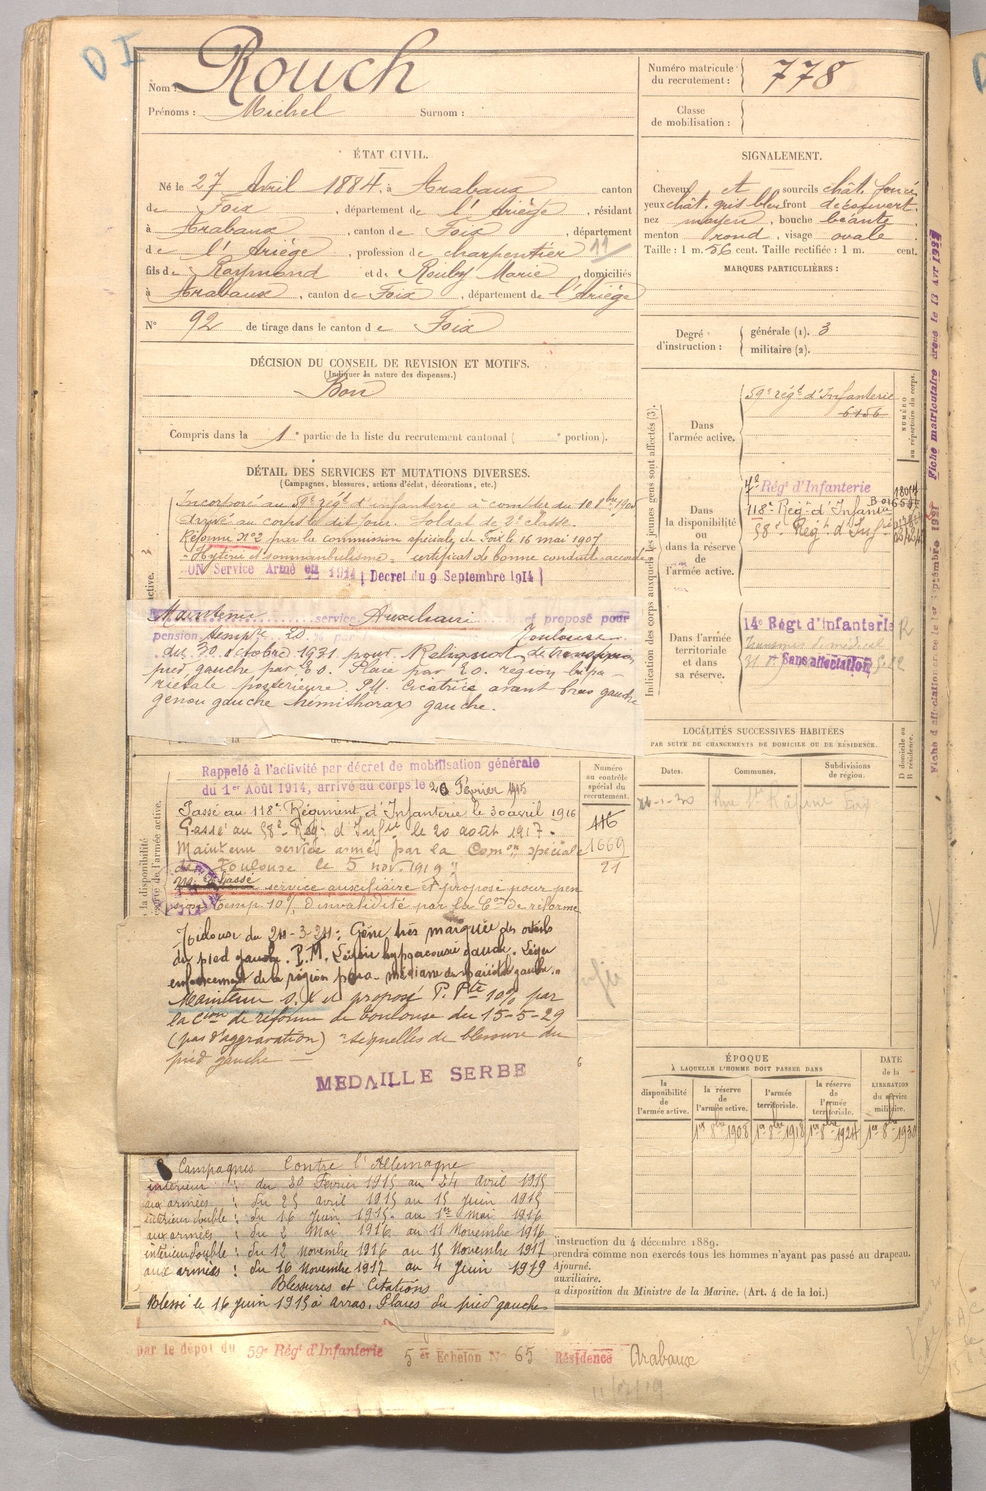 D I
Nom Rouch
Prénoms : Michel Surnom :
Numéro matricule du recrutement : 778
Classe de mobilisation :
ÉTAT CIVIL.
Né le 27 Avril 1884, à Arabaux canton
de Foix, département de l'Ariège, résidant
à Arabaux, canton de Foix, département
de l'Ariège, profession de charpentier 11
fils de Raymond et de Rouby Marie, domiciliés
à Arabaux, canton de Foix, département de l'Ariège
N° 92 de tirage dans le canton de Foix
SIGNALEMENT.
Cheveux et sourcils chât. foncé
yeux chât. gris bleu front découvert
nez moyen, bouche béante
menton rond, visage ovale
Taille : 1 m. 56 cent. Taille rectifiée : 1 m. cent.
MARQUES PARTICULIÈRES :
Degré d'instruction : générale (1). 3
militaire (2).
DÉCISION DU CONSEIL DE REVISION ET MOTIFS.
(Indiquer la nature des dispenses.)
Bon
Compris dans la 1e partie de la liste du recrutement cantonal ( e portion).
DÉTAIL DES SERVICES ET MUTATIONS DIVERSES.
(Campagnes, blessures, actions d'éclat, décorations, etc.)
Incorporé au 59e régt d'infanterie à compter du 10 8bre 1905
Arrivé au corps le dit jour. Soldat de 2e classe.
Réformé N°2 par la commission spéciale de Foix le 16 mai 1907
"Hystérie et somnambulisme." certificat de bonne conduite accordé
Service Armé en 1914 Decret du 9 Septembre 1914
Maintenu service Auxiliaire et proposé pour
pension temp. 20 % Toulouse
du 30 octobre 1931 pour
pied gauche par E.O. Plaie par E.O. région
postérieure P.M. cicatrice avant bras gauche
genou gauche hémithorax gauche.
Rappelé à l'activité par décret de mobilisation générale
du 1er Août 1914, arrivé au corps le 20 Février 1915
Passé au 118e Régiment d'Infanterie le 30 avril 1916
Passé au 58e Régt d'Infie le 20 août 1917.
Maintenu service armé par la Comon spéciale
de Toulouse le 5 nov. 1919
Classé service auxiliaire et proposé pour pen
sion temp. 10% d'invalidité par la Con de réforme
Toulouse du 24-3-24 : Gêne très marquée des orteils
du pied gauche. P.M. Légère hypoacousie gauche. Léger
enfoncement de la région para-médiane du pariétal gauche.
Maintenu S.X et proposé P. Pte 10% par
la Cion de réforme de Toulouse du 15-5-29
(pas d'aggravation) séquelles de blessure du
pied gauche
MEDAILLE SERBE
Campagnes Contre l'Allemagne
intérieur : du 20 Fevrier 1915 au 24 avril 1915
aux armées : du 25 avril 1915 au 15 Juin 1915
intérieur double : du 16 Juin 1915 au 1er Mai 1916
aux armées : du 2 Mai 1916 au 11 Novembre 1916
intérieur double : du 12 novembre 1916 au 15 Novembre 1917
aux armées : du 16 Novembre 1917 au 4 Juin 1919
Blessures et Citations
Blessé le 16 juin 1915 à Arras. Plaies du pied gauche
Numéro au contrôle spécial du recrutement.
116
1669
21
Indication des corps auxquels les jeunes gens sont affectés (3).
Dans l'armée active.
59e régt d'Infanterie
6156
NUMÉRO au répertoire du corps.
Dans la disponibilité ou dans la réserve de l'armée active.
Régt d'Infanterie
118e Régt d'Infanterie
58e Régt d'Inf
Dans l'armée territoriale et dans sa réserve.
14e Régt d'infanterie
Sans affectation
LOCALITÉS SUCCESSIVES HABITÉES
PAR SUITE DE CHANGEMENTS DE DOMICILE OU DE RÉSIDENCE.
Dates. Communes. Subdivisions de région. D domicile ou R résidence.
ÉPOQUE
À LAQUELLE L'HOMME DOIT PASSER DANS
la disponibilité de l'armée active. la réserve de l'armée active. l'armée territoriale. la réserve de l'armée territoriale. DATE de la LIBÉRATION du service militaire.
1er 8bre 1908 1er 8bre 1918 1er 8bre 1924 1er 8bre 1930
instruction du 4 décembre 1889.
prendra comme non exercés tous les hommes n'ayant pas passé au drapeau.
Ajourné.
auxiliaire.
a disposition du Ministre de la Marine. (Art. 4 de la loi.)
par le dépôt du 59e Régt d'Infanterie 5er Echelon N° 65 Résidence Arabaux